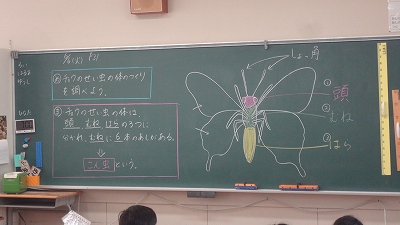 P21
め チョウのせい虫の体のつくり
を調べよう。
ま チョウのせい虫の体は、
頭、むね、はらの3つに
分かれ、むねに6本のあしがある。
こん虫 という。
しょっ角
① 頭
② むね
③ はら